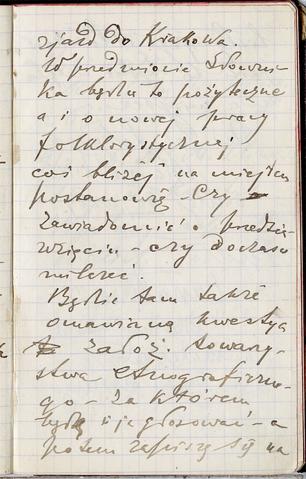 zjazd do Krakowa.
W przedmiocie Słowni-
ka będzie to pożyteczne
a i o nowej pracy
folklorystycznej
coś bliżej na miejscu
postanowię - Czy
zawiadomić o przedsię-
wzięciu - czy do czasu
milczeć.
Będzie tam także
omawiana kwestya
załoź. towarzy-
stwa etnograficzne-
go - za którem
będę i ja głosować - a
potem zapiszę się na